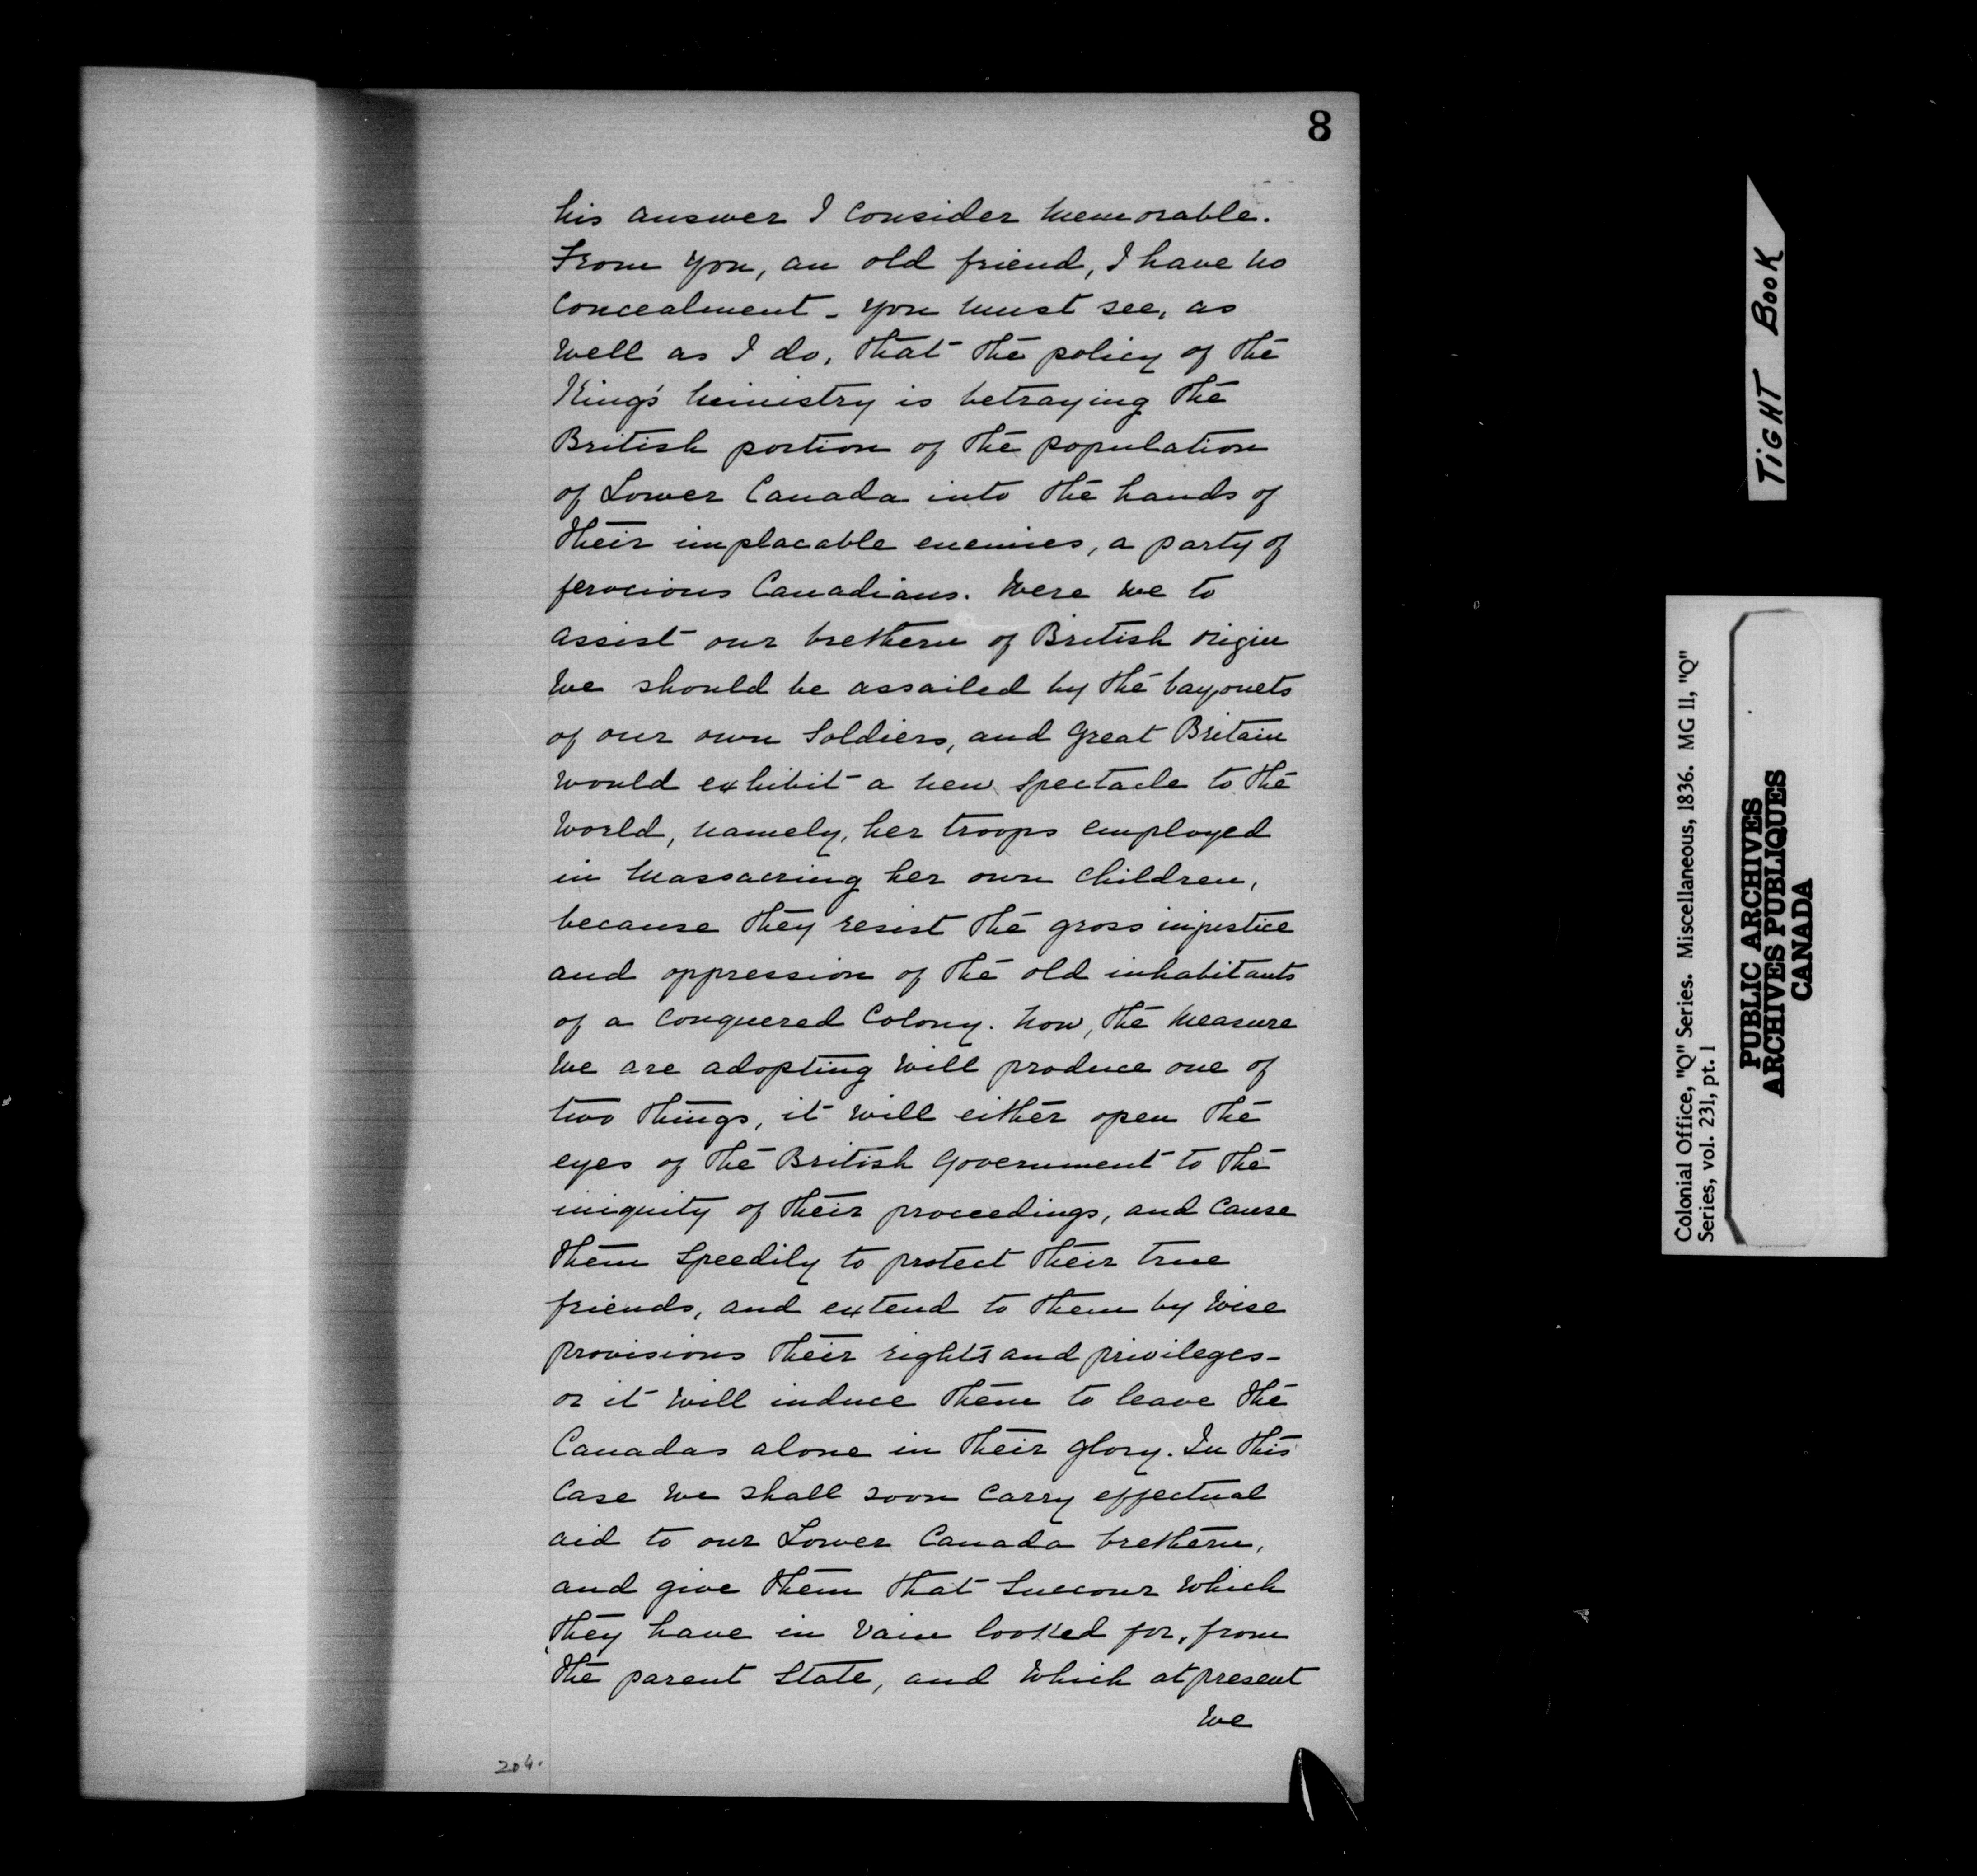 8
his answer I consider memorable.
From you, an old friend, I have no
concealment - you must see, as
well as I do, that the policy of the
King's ministry is betraying the
British portion of the population
of Lower Canada into the hands of
their implacable enemies, a party of
ferocious Canadians. Were we to
assist our brethern of British origin
we should be assailed by the bayonets
of our own soldiers, and Great Britain
would exhibit a new spectacle to the
world, namely, her troops employed
in massacring her own children,
because they resist the gross injustice
and oppression of the old inhabitants
of a conquered Colony. Now, the measure
we are adopting will produce one of
two things, it will either open the
eyes of the British Government to the
iniquity of their proceedings, and cause
them speedily to protect their true
friends, and extend to them by wise
provisions their rights and privileges -
or it will induce them to leave the
Canadas alone in their glory. In this
case we shall soon carry effectual
aid to our Lower Canada brethern,
and give them that succour which
they have in vain looked for, from
the parent State, and which at present
we
204.
TIGHT BOOK
Colonial Office, "Q" Series. Miscellaneous, 1836. MG 11, "Q"
Series, vol. 231, pt. 1
PUBLIC ARCHIVES
ARCHIVES PUBLIQUES
CANADA